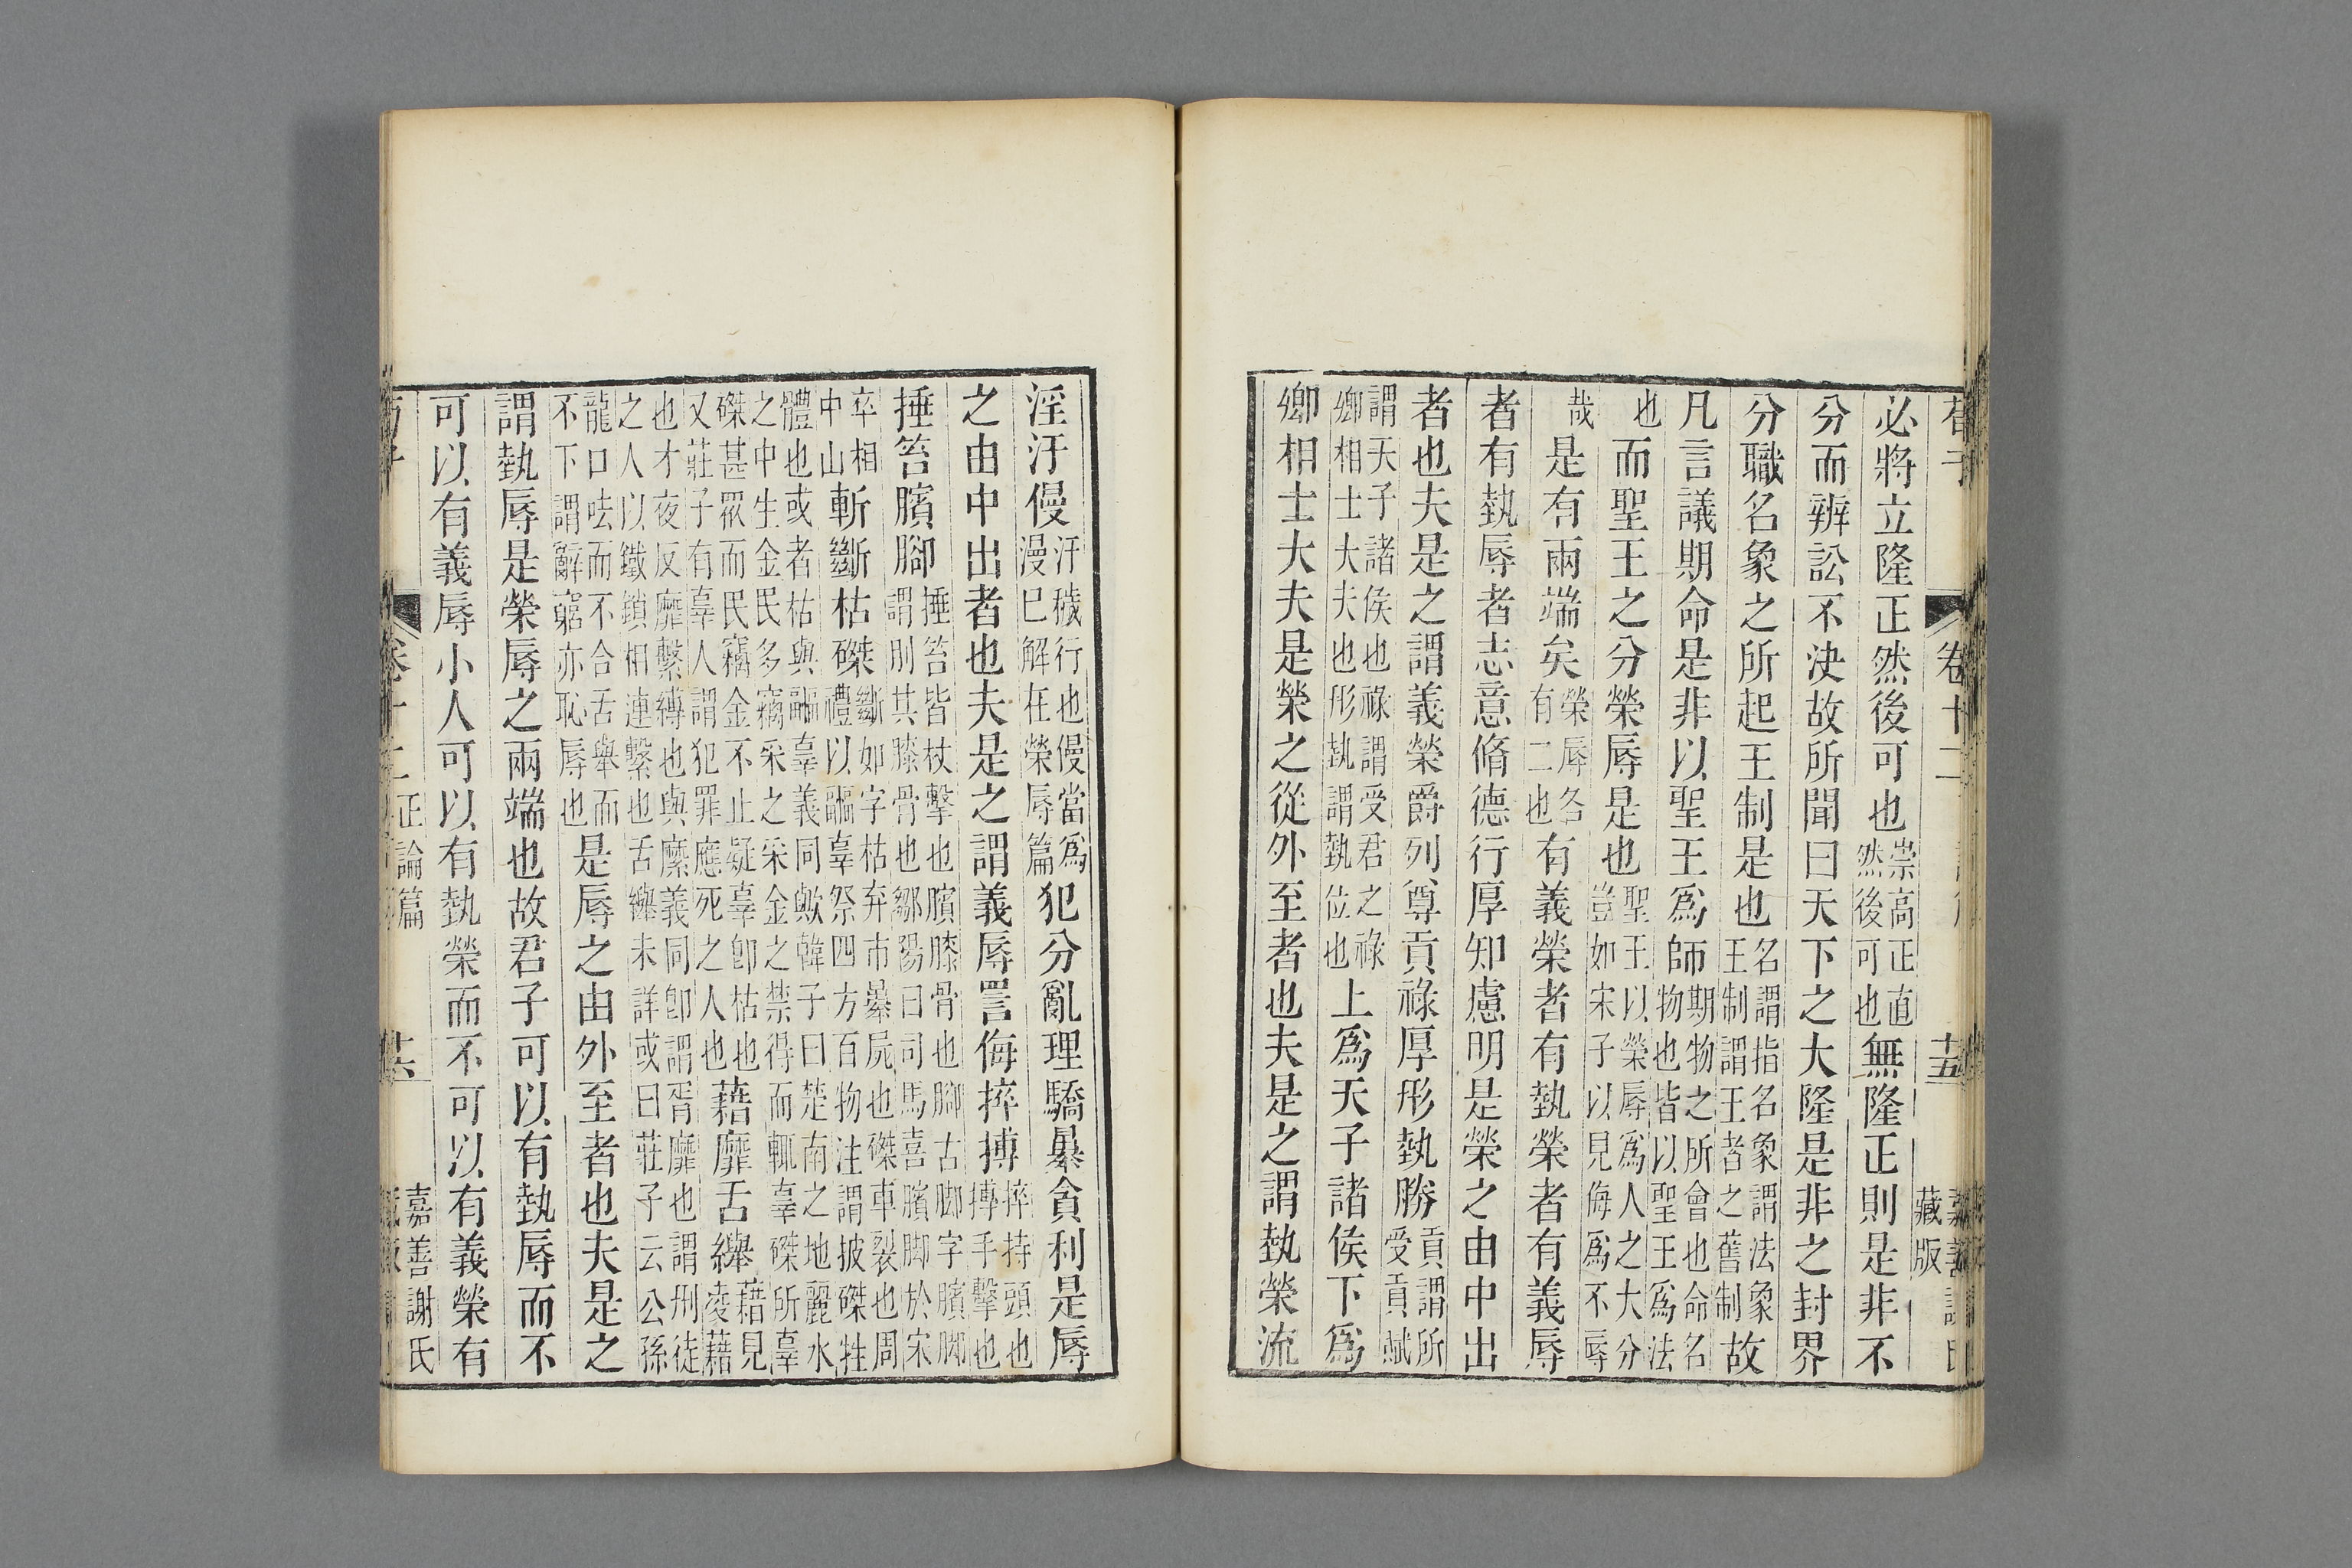 荀子 卷十二 十五 嘉善謝氏藏版
必將立隆正然後可也崇高正直然後可也無隆正則是非不
分而辨訟不決故所聞曰天下之大隆是非之封界
分職名象之所起王制是也名謂指名象謂法象王制謂王者之舊制故
凡言議期命是非以聖王爲師期物之所會也命名物也皆以聖王爲法
也而聖王之分榮辱是也聖王以榮辱爲人之大分豈如宋子以見侮爲不辱
哉是有兩端矣榮辱各有二也有義榮者有埶榮者有義辱
者有埶辱者志意脩德行厚知慮明是榮之由中出
者也夫是之謂義榮爵列尊貢祿厚形埶勝貢謂所受貢賦
謂天子諸侯也祿謂受君之祿卿相士大夫也形埶謂埶位也上爲天子諸侯下爲
卿相士大夫是榮之從外至者也夫是之謂埶榮流
淫汙僈汙穢行也僈當爲漫已解在榮辱篇犯分亂理驕暴貪利是辱
之由中出者也夫是之謂義辱詈侮捽搏捽持頭也搏手擊也
捶笞臏腳捶笞皆杖擊也臏膝骨也腳古脚字臏脚謂刖其膝骨也鄒陽曰司馬喜臏脚於宋
卒相中山斬斷枯磔斷如字枯弃市暴屍也磔車裂也周禮以疈辜祭四方百物注謂披磔牲
體也或者枯與疈辜義同歟韓子曰楚南之地麗水之中生金民多竊采之采金之禁得而輒辜磔所辜
磔甚衆而民竊金不止疑辜卽枯也又莊子有辜人謂犯罪應死之人也藉靡舌纆藉見凌藉
也才夜反靡繫縛也與縻義同卽謂胥靡也謂刑徒之人以鐵鎖相連繫也舌纆未詳或曰莊子云公孫
龍口呿而不合舌舉而不下謂辭窮亦恥辱也是辱之由外至者也夫是之
謂埶辱是榮辱之兩端也故君子可以有埶辱而不
可以有義辱小人可以有埶榮而不可以有義榮有
卷十二正論篇 十六 嘉善謝氏